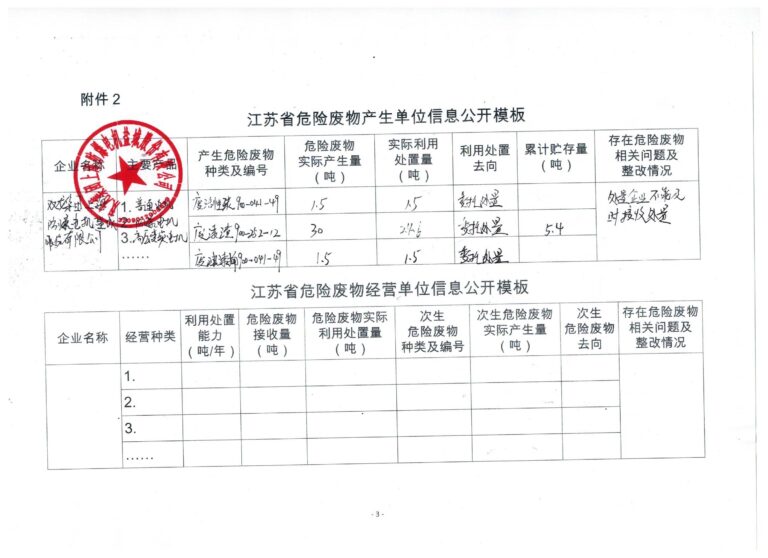 附件2
江苏省危险废物产生单位信息公开模板
企业名称 主要产品 产生危险废物种类及编号 危险废物实际产生量(吨) 实际利用处置量(吨) 利用处置去向 累计贮存量(吨) 存在危险废物相关问题及整改情况
1. 废活性炭900-041-49 1.5 1.5 委托处置
废漆渣900-252-12 30 委托处置 5.4
3. 900-041-49 1.5 1.5 委托处置
……
处置企业不能及时接收处置
江苏省危险废物经营单位信息公开模板
企业名称 经营种类 利用处置能力(吨/年) 危险废物接收量(吨) 危险废物实际利用处置量(吨) 次生危险废物种类及编号 次生危险废物实际产生量(吨) 次生危险废物去向 存在危险废物相关问题及整改情况
1.
2.
3.
……
- 3 -